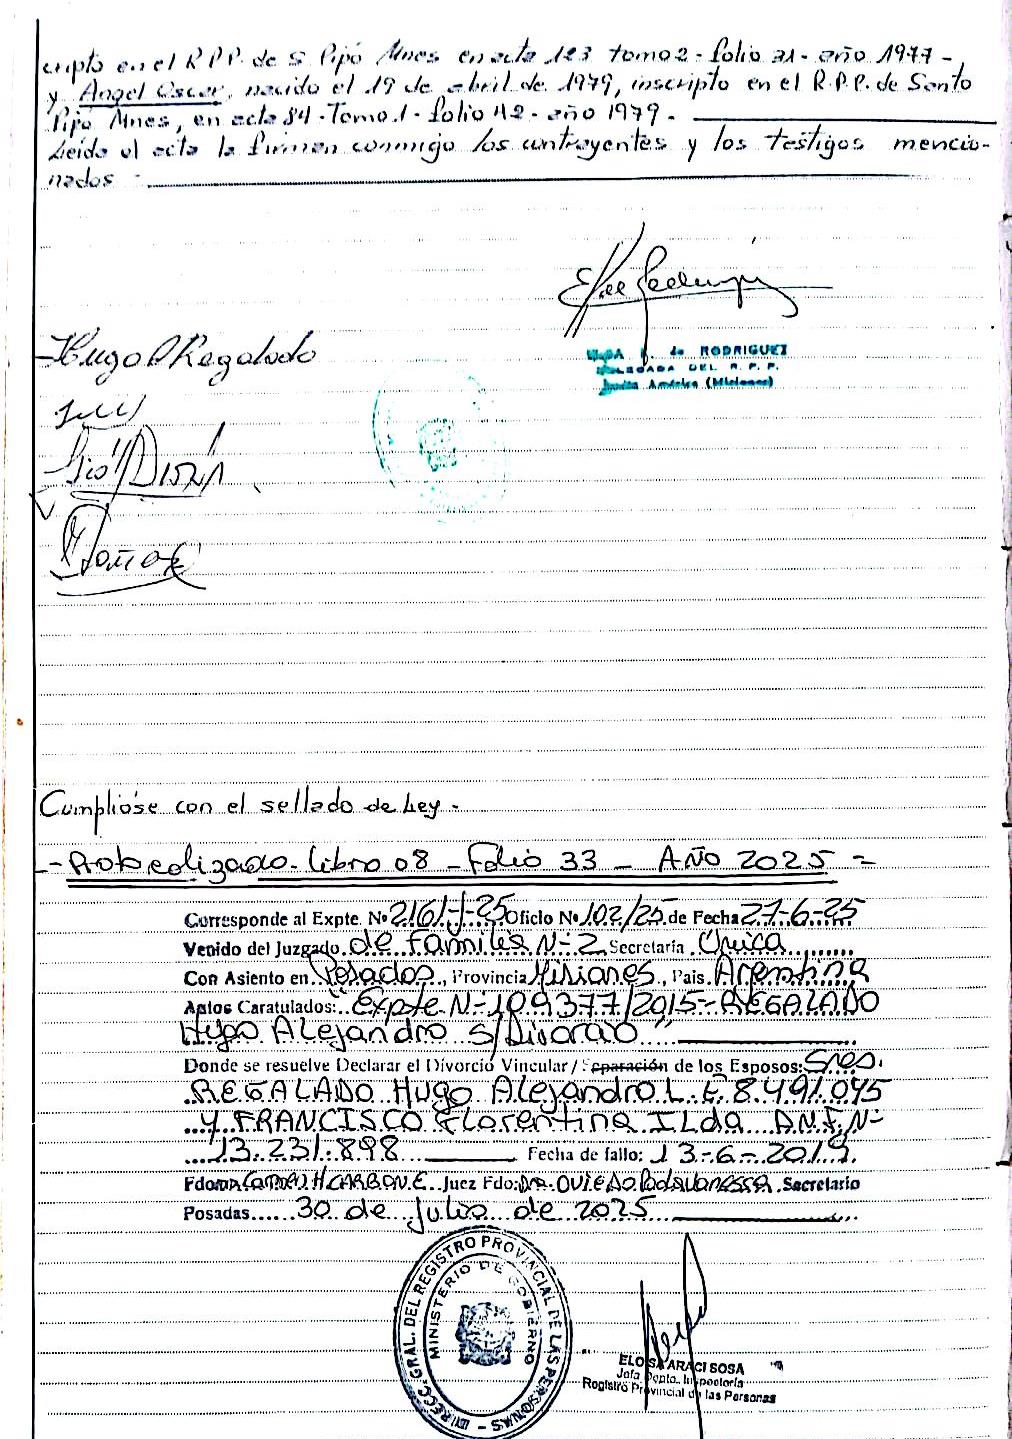 cripto en el R.P.P. de S. Pipó Mnes en acta 123 tomo 2 - folio 31 - año 1977 -
y Angel Oscar, nacido el 19 de abril de 1979, inscripto en el R.P.P. de Santo
Pipó Mnes, en acta 84 - Tomo 1 - folio 42 - año 1979. -
Leida el acta la firman conmigo los contrayentes y los testigos mencio-
nados -
Hugo A Regalado
de RODRIGUEZ
DELEGADA DEL R. P. P.
Santa América (Misiones)
Cumplióse con el sellado de Ley -
- Protocolizado - Libro 08 - Folio 33 - AÑO 2025 =
Corresponde al Expte. Nº 2161-J-25 Oficio Nº 102/25 de Fecha 27-6-25
Venido del Juzgado de Familia N-2 Secretaría Única
Con Asiento en Posadas, Provincia Misiones, Pais Argentina
Autos Caratulados: "Expte N-109377/2015-REGALADO
Hugo Alejandro S/Divorcio"
Donde se resuelve Declarar el Divorcio Vincular / Separación de los Esposos: Sres.
REGALADO Hugo Alejandro L.E 8.491.045
y FRANCISCO Florentina ILda D.N.I. N-
13.231.898 Fecha de fallo: 13-6-2019.
Fdo: CARBONE Juez Fdo: Dra. OVIEDO Secretario
Posadas 30 de Julio de 2025
DIRECC. GRAL. DEL REGISTRO PROVINCIAL DE LAS PERSONAS -
MINISTERIO DE GOBIERNO
ELOISA ARACI SOSA
Jefa Depto. Inspectoría
Registro Provincial de las Personas